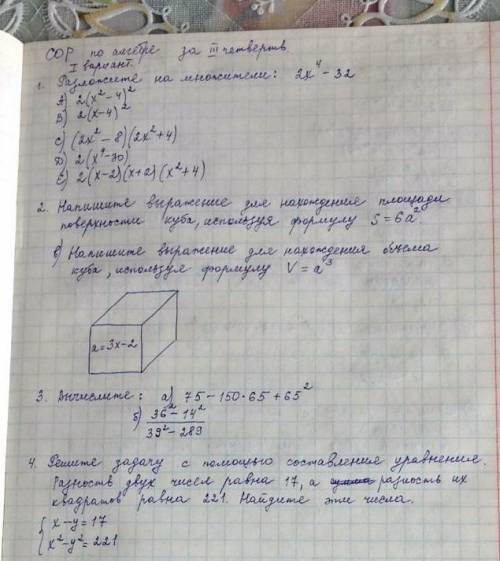 СОР по алгебре за III четверть
I вариант.
1. Разложите на множители: 2x⁴ - 32
A) 2(x² - 4)²
B) 2(x-4)²
C) (2x² - 8)(2x² + 4)
D) 2(x⁴-30)
E) 2(x-2)(x+2)(x²+4)
2. Напишите выражение для нахождения площади
поверхности куба, используя формулу S = 6a².
в) Напишите выражение для нахождения объема
куба, используя формулу V = a³
a = 3x-2
3. Вычислите: а) 75 - 150·65 + 65²
б) 36² - 14²
39² - 289
4. Решите задачу с помощью составления уравнения.
Разность двух чисел равна 17, а разность их
квадратов равна 221. Найдите эти числа.
{ x - y = 17
x² - y² = 221